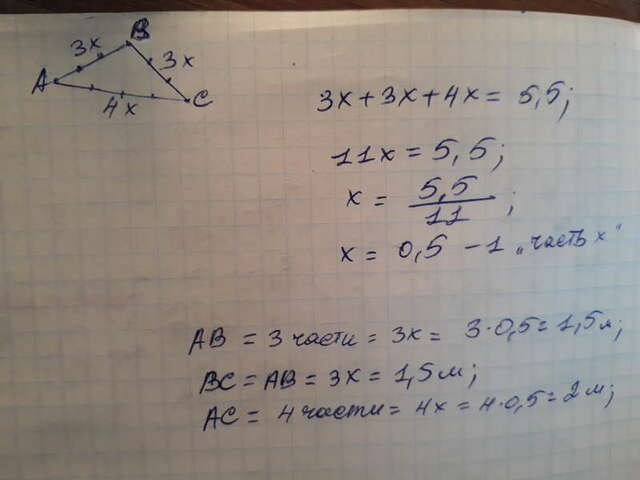 B
3x 3x
A C
4x
3x + 3x + 4x = 5,5;
11x = 5,5;
x = 5,5/11;
x = 0,5 - 1 „часть x"
AB = 3 части = 3x = 3·0,5 = 1,5м;
BC = AB = 3x = 1,5м;
AC = 4 части = 4x = 4·0,5 = 2м;